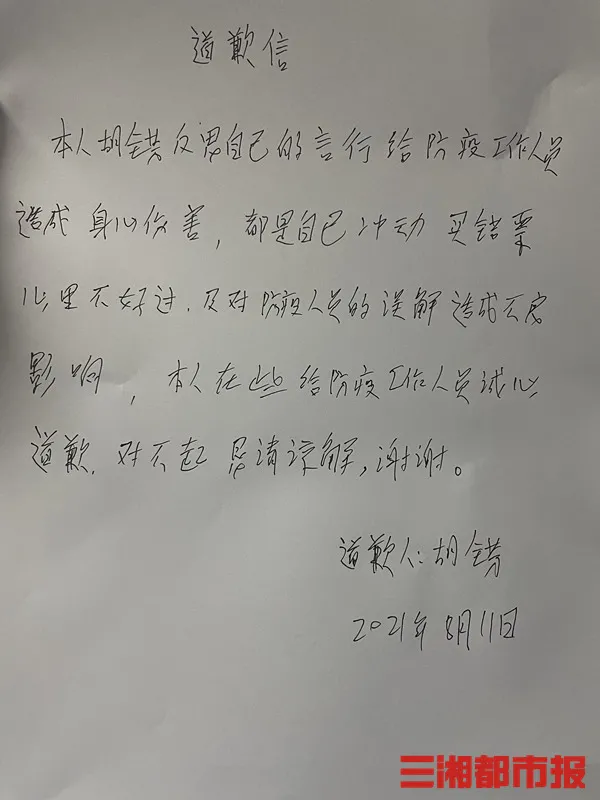 道歉信
本人胡 反思自己的言行给防疫工作人员
造成身心伤害，都是自己冲动 买错票
心里不好过.及对防疫人员的误解造成不良
影响，本人在此给防疫工作人员诚心
道歉.对不起 恳请谅解,谢谢。
道歉人:胡
2021年8月11日
三湘都市报